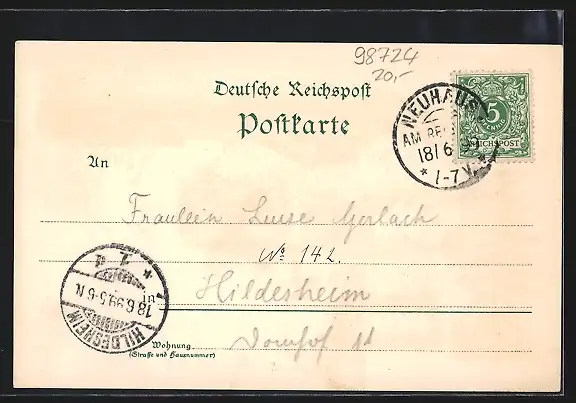 98724
20,-
Deutsche Reichspost
Postkarte
NEUHAUS
AM RE
18/6 99
* 1-7 V. *
5
REICHSPOST
An
Fräulein Luise Gerlach
No 142.
Hildesheim
in
Domhof 11
Wohnung
(Straße und Hausnummer)
HILDESHEIM
18.6.99.5-6 N.